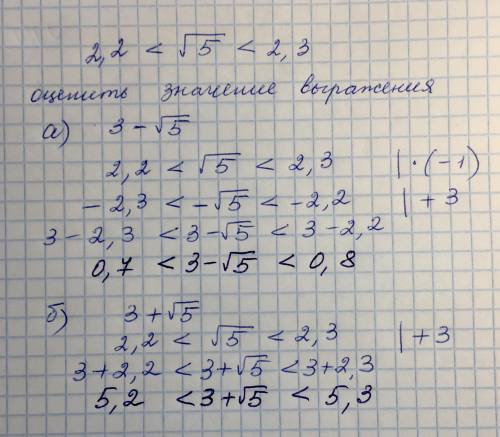 2,2 < √5 < 2,3
оценить значение выражения
а) 3 - √5
2,2 < √5 < 2,3 | · (-1)
- 2,3 < -√5 < -2,2 | + 3
3 - 2,3 < 3 - √5 < 3 - 2,2
0,7 < 3 - √5 < 0,8
б) 3 + √5
2,2 < √5 < 2,3 | + 3
3 + 2,2 < 3 + √5 < 3 + 2,3
5,2 < 3 + √5 < 5,3